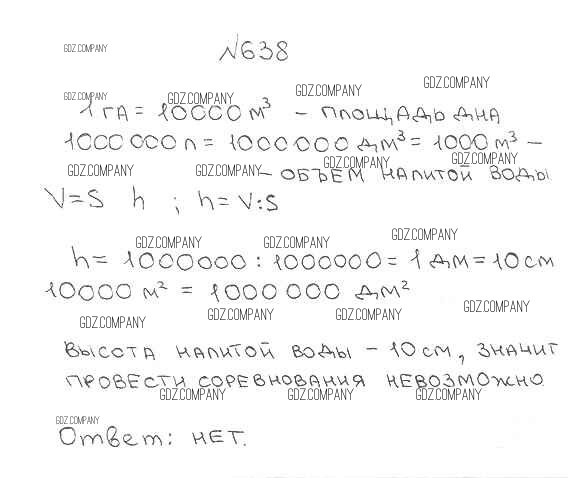 GDZ.COMPANY
№638
GDZ.COMPANY GDZ.COMPANY GDZ.COMPANY GDZ.COMPANY
1 ГА = 10000 м³ - ПЛОЩАДЬ ДНА
1000 000 л = 1000 000 ДМ³ = 1000 м³ -
GDZ.COMPANY GDZ.COMPANY GDZ.COMPANY GDZ.COMPANY
- ОБЪЕМ НАЛИТОЙ ВОДЫ
V=S h ; h = V:S
GDZ.COMPANY GDZ.COMPANY GDZ.COMPANY
h = 1000000 : 1000000 = 1 ДМ = 10 СМ
10000 м² = 1000 000 ДМ²
GDZ.COMPANY GDZ.COMPANY GDZ.COMPANY GDZ.COMPANY
ВЫСОТА НАЛИТОЙ ВОДЫ - 10 СМ, ЗНАЧИТ
ПРОВЕСТИ СОРЕВНОВАНИЯ НЕВОЗМОЖНО.
GDZ.COMPANY GDZ.COMPANY GDZ.COMPANY
GDZ.COMPANY
Ответ: НЕТ.